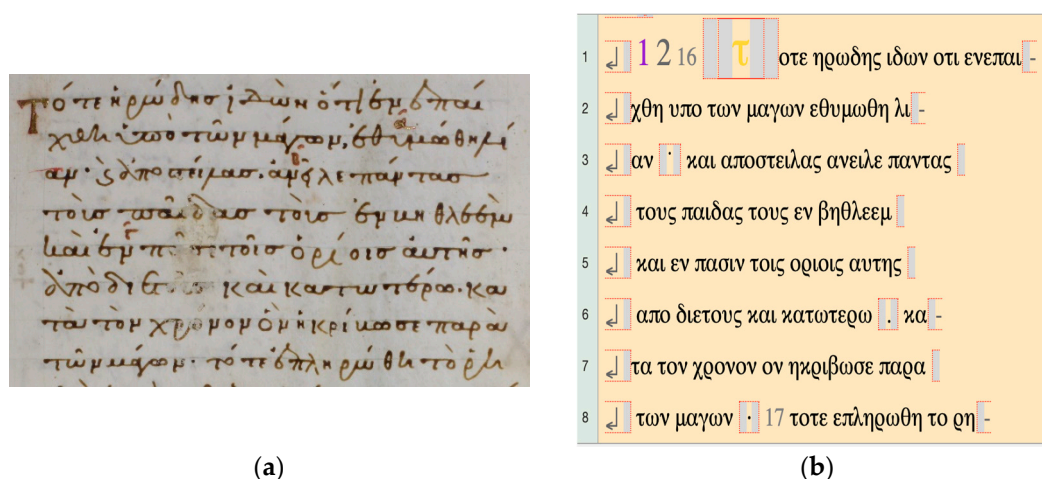 Τότε ἡρώδησ ἰδὼν ὅτι ἐνεπαί
χθη ὑπὸ τῶν μάγων, ἐθυμώθη λί
αν· ϗ ἀποστείλασ· ἀνεῖλε πάντασ
παῖδασ ἐν βηθλεὲμ
καὶ ἐν τοῖσ ὁρίοισ αὐτῆσ·
ἀπὸ καὶ κατωτέρω· κα
τὰ τὸν χρόνον ὃν ἠκρίβωσε παρὰ
τῶν μάγων· τότε ἐπληρώθη τὸ ῥη
(a)
1 ↲ 1 2 16 τοτε ηρωδης ιδων οτι ενεπαι-
2 ↲ χθη υπο των μαγων εθυμωθη λι-
3 ↲ αν · και αποστειλας ανειλε παντας
4 ↲ τους παιδας τους εν βηθλεεμ
5 ↲ και εν πασιν τοις οριοις αυτης
6 ↲ απο διετους και κατωτερω . κα-
7 ↲ τα τον χρονον ον ηκριβωσε παρα
8 ↲ των μαγων · 17 τοτε επληρωθη το ρη-
(b)